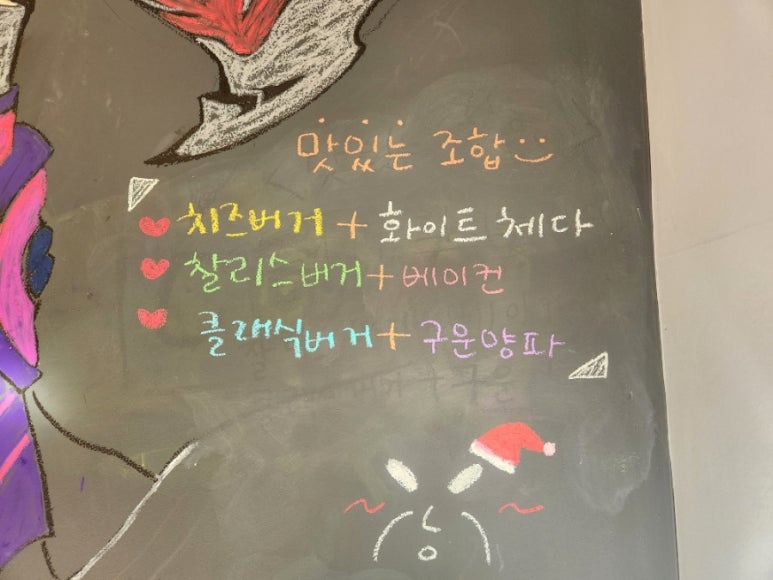 맛있는 조합
치즈버거 + 화이트 체다
찰리스버거 + 베이컨
클래식버거 + 구운양파